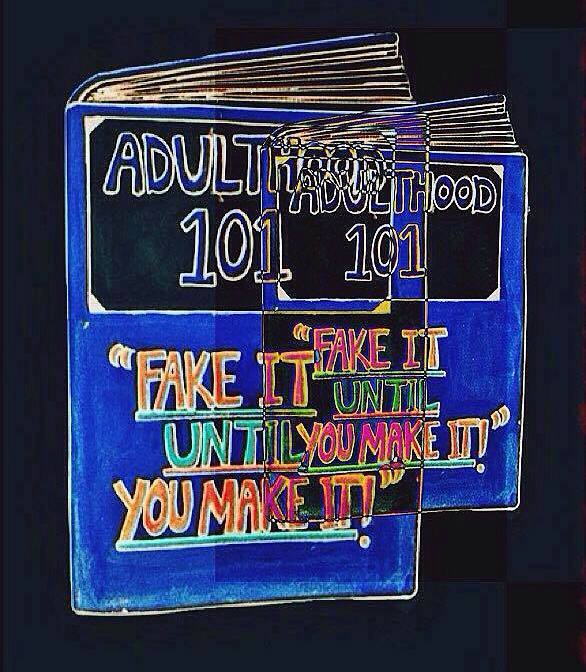 ADULTHOOD
101
"FAKE IT
UNTIL
YOU MAKE IT!"
ADULTHOOD
101
"FAKE IT
UNTIL
YOU MAKE IT!"